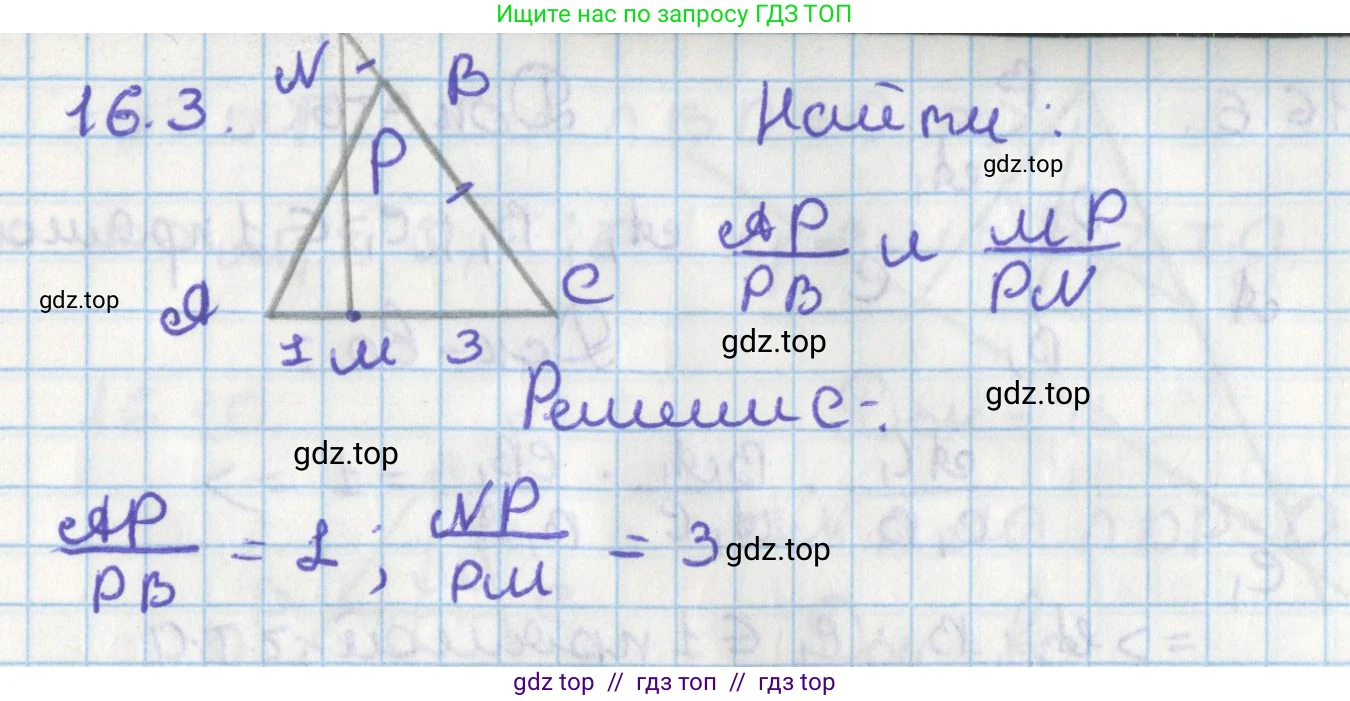 Ищите нас по запросу ГДЗ ТОП
16.3.
N B
P
A C
1 M 3
Найти:
gdz.top
AP/PB и MP/PN
gdz.top
gdz.top
gdz.top
Решение:
gdz.top
AP/PB = 1; NP/PM = 3
gdz.top
gdz top // гдз топ // gdz top